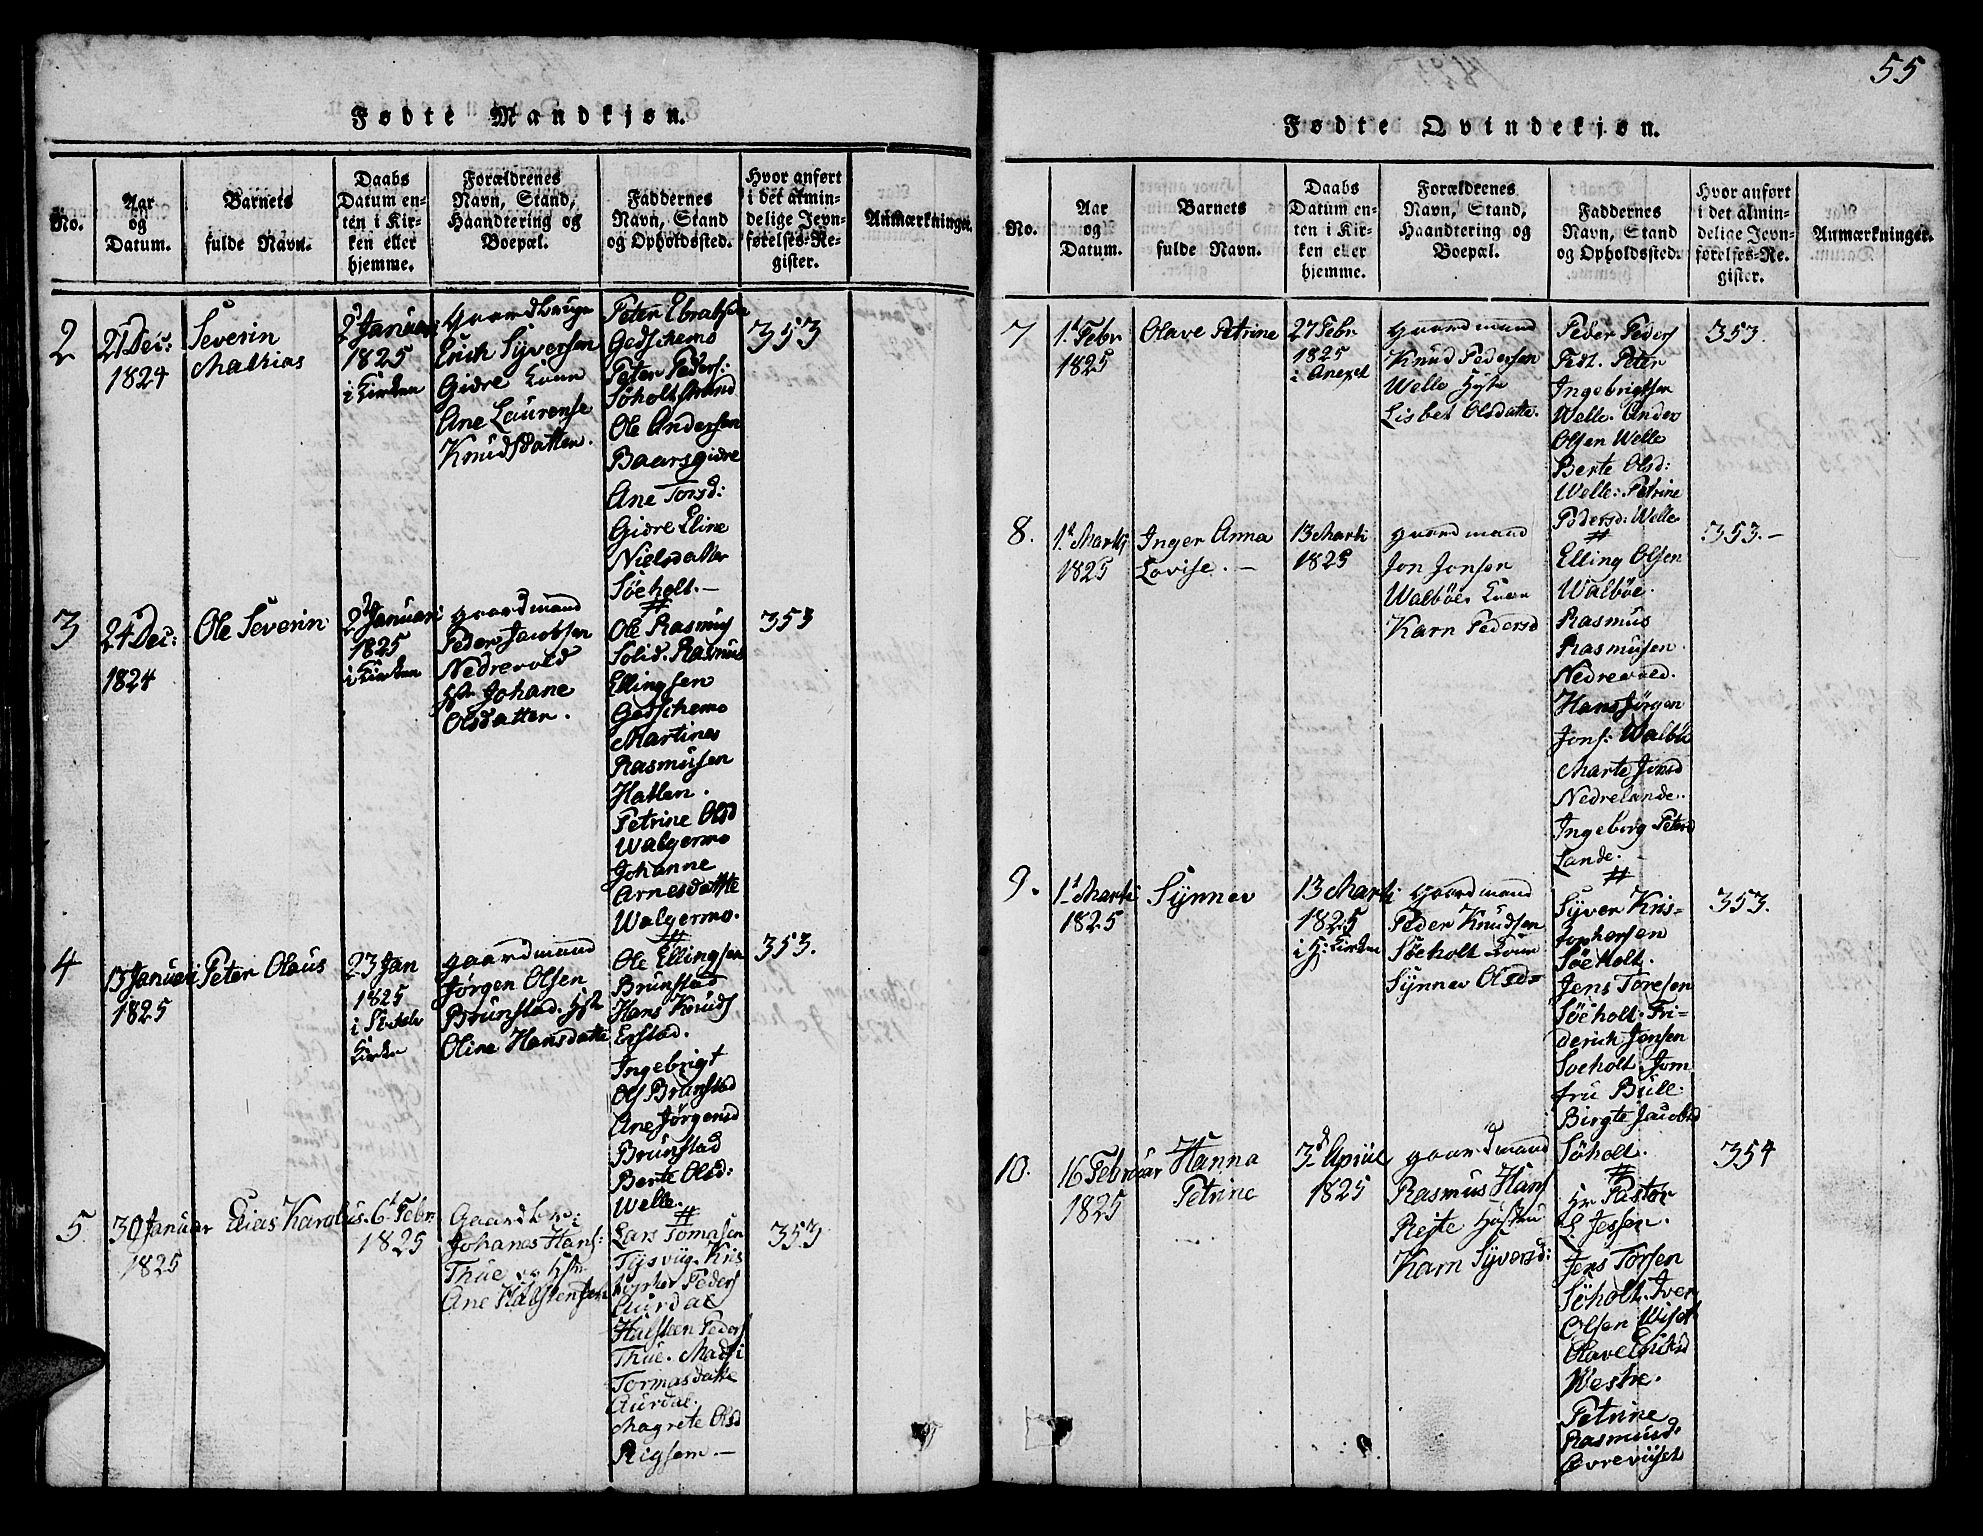 55
Fødte Mandkjøn.
No.
Aar
og
Datum.
Barnets
fulde Navn.
Daabs
Datum en-
ten i Kir-
ken eller
hjemme.
Forældrenes
Navn, Stand,
Haandtering og
Boepæl.
Faddernes
Navn, Stand
og Opholdssted.
Hvor anført
i det almin-
delige Jevn-
førelses-Re-
gister.
Anmærkninger.
2
21 Dec:
1824
Severin
Mathias
2d Januari
1825
i Kirken
Erich Syversen
Gidre Kone
Ane Laurense
Knudsdatter.
Peter Ebratsen
Gedschemo
Peter Peders:
Søholtstrand
Ole Andersen
Baarsgidre
Ane Torsd:
Gidre Eline
Nielsdatter
Søeholt.—
353
3
24 Dec:
1824
Ole Severin
2d Januari
1825
i Kirken
gaardmand
Peder Jacobsen
Nedrevold
Johane
Olsdatter.
Ole Rasmus
Solid. Rasmus
Ellingsen
Gedschemo
Martines
Rasmusen
Hatlen.
Petrine Olsd
Walgermo
Johanne
Arnesdatte
Walgermo.
353
4
13 Januari
1825
Peter Olaus
23 Jan
1825
i
Kirke
gaardmand
Jørgen Olsen
Brunstad. Hst
Oline Hansdatte
Ole Ellingsen
Brunstad
Hans Knuds
Erstad.
Ingebrigt
Ols Brunstad
Ane Jørgensd
Brunstad
Berte Olsd:
Welle.
353.
5
30 Januar
1825
Elias Karolus.
6t Febr
1825
Johanes Hans:
Thue og Hstr.
Ane
Lars Tomasen
Tysvüg. Kris
topher Peders
Aurdal
Halsteen Peders
Thue. Madsi
Tormasdatte
Aurdal.
Magrete Olsd
Rigsem—
353
Fødte Qvindekjøn.
No.
Aar
og
Datum.
Barnets
fulde Navn.
Daabs
Datum en-
ten i Kir-
ken eller
hjemme.
Forældrenes
Navn, Stand,
Haandtering og
Boepæl.
Faddernes
Navn, Stand
og Opholdssted.
Hvor anført
i det almin-
delige Jevn-
førelses-Re-
gister.
Anmærkninger.
7
1t Febr
1825
Olave Petrine
27 Febr
1825
i Anexet
gaardmand
Knud Pedersen
Welle Hste
Lisbet Olsdatte.
Peder Peders
Peter
Ingebrigtsen
Welle. Ander
Olsen Welle
Berte Olsd:
Welle: Petrine
Pedersd: Welle
353.
8.
1t Marti
1825
Inger Anna
Lovise.—
13 Marti
1825
gaardmand
Jon Jonsen
Walbøe Kone
Karn Pedersd
Elling Olsen
Walbøe.
Rasmus
Rasmusen.
Nedrevold.
Hans Jørgen
Jons: Walbø
Marte Jonsd
Nedrelande.
Ingeborg Petersd
Lande.
353.—
9.
1t Marti
1825
Synnev
13 Marti
1825
i H: Kirken
gaardmand
Peder Knudsen
Søeholt Kone
Synnev Olsd
Syver Kris-
tophersen
Søeholt.
Jens Toresen
Søeholt. Fri-
derich Jensen
Soeholt. Jom
fru Bull.
Birgte Jacobsd
Søholt.
353.
10.
16 Februar
1825
Hanna
Petrine
3d April
1825
gaardmand
Rasmus Hans
Rejte Hustru
Karn Syversd:
Hr Pastor
Jessen.
Jens Torsen
Søholt. Iver
Olsen Wiset
Olave Eriksd
Westre.
Petrine
Rasmusd.
Øvreviset
354